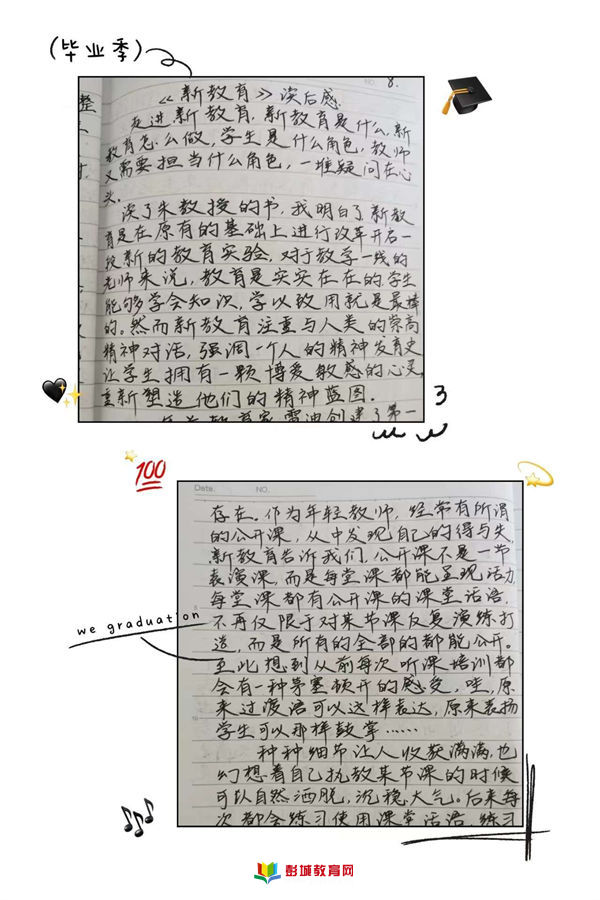 (毕业季)
8.
《新教育》读后感
走进新教育,新教育是什么,新
教育怎么做,学生是什么角色,教师
又需要担当什么角色,一堆疑问在心
头。
读了朱教授的书,我明白了新教
育是在原有的基础上进行改革开启一
段新的教育实验,对于教学一线的
老师来说,教育是实实在在的学生
能够学会知识,学以致用就是最棒
的。然而新教育注重与人类的崇高
精神对话,强调一个人的精神发育史
让学生拥有一颗博爱敏感的心灵,
重新塑造他们的精神蓝图。
教育家雷迪创建了第一
100
Date. NO.
存在。作为年轻教师,经常有所谓
的公开课,从中发现自己的得与失,
新教育告诉我们,公开课不是一节
表演课,而是每堂课都能呈现活力,
每堂课都有公开课的课堂话语,
不再仅限于对某节课反复演练打
造,而是所有的全部的都能公开。
we graduation
至此想到从前每次听课培训都
会有一种茅塞顿开的感觉,哇,原
来过渡语可以这样表达,原来表扬
学生可以那样鼓掌……
种种细节让人收获满满,也
幻想着自己执教某节课的时候
可以自然洒脱,沉稳大气。后来每
次都会练习使用课堂话语,练习
彭城教育网